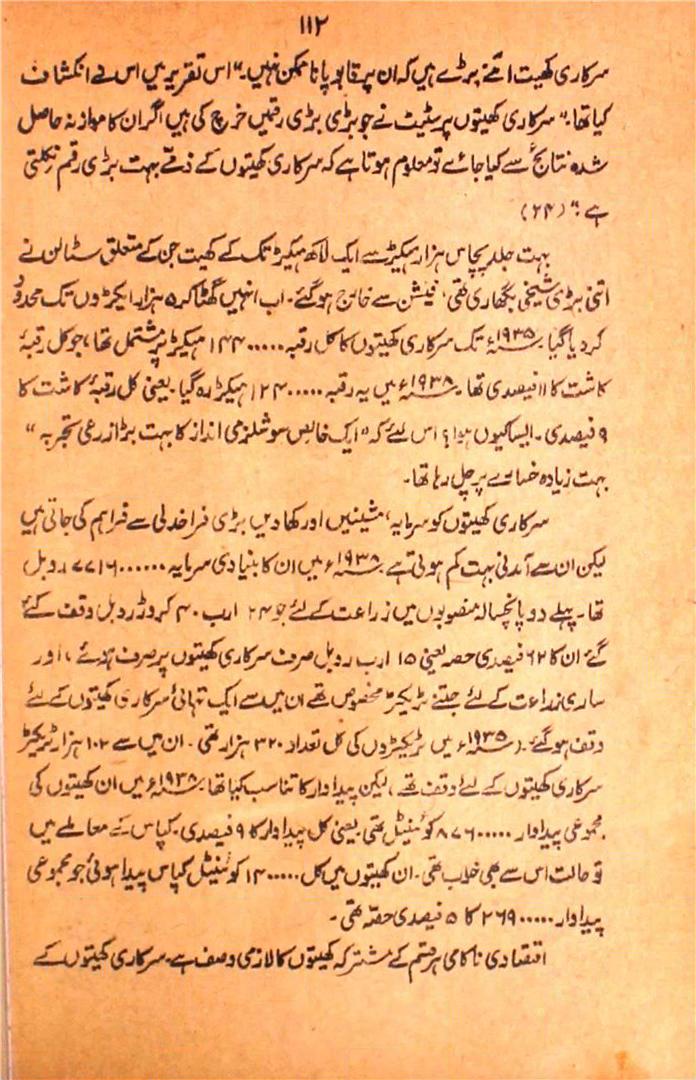 ۱۱۲
سرکاری کھیت اتنے بڑے ہیں کہ ان پر قابو پانا ممکن نہیں۔" اس تقریر میں اس نے انکشاف
کیا تھا۔" سرکاری کھیتوں پر سٹیٹ نے جو بڑی بڑی رقمیں خرچ کی ہیں اگر ان کا موازنہ حاصل
شدہ نتائج سے کیا جائے تو معلوم ہوتا ہے کہ سرکاری کھیتوں کے ذمّے بہت بڑی رقم نکلتی
ہے۔" (۲۴)
بہت جلد پچاس ہزار ہیکڑ سے ایک لاکھ ہیکڑ تک کے کھیت جن کے متعلق سٹالن نے
اتنی بڑی شیخی بگھاری تھی، فیشن سے خارج ہو گئے۔ اب انہیں گھٹا کر ۵ ہزار ایکڑوں تک محدود
کر دیا گیا۔ ۱۹۳۵ء تک سرکاری کھیتوں کا کل رقبہ ۱۴۴۰۰۰۰۰ ہیکڑ پر مشتمل تھا، جو کل رقبۂ
کاشت کا ۱۱ فیصدی تھا۔ ۱۹۳۸ء میں یہ رقبہ ۱۲۴۰۰۰۰۰ ہیکڑ رہ گیا۔ یعنی کل رقبۂ کاشت کا
۹ فیصدی۔ ایسا کیوں ہوا؟ اس لئے کہ "ایک خالص سوشلزمی انداز کا بہت بڑا زرعی تجربہ"
بہت زیادہ خسارے پر چل رہا تھا۔
سرکاری کھیتوں کو سرمایہ، مشینیں اور کھادیں بڑی فراخدلی سے فراہم کی جاتی ہیں
لیکن ان سے آمدنی بہت کم ہوتی ہے۔ ۱۹۳۸ء میں ان کا بنیادی سرمایہ ۷۷۱۶۰۰۰۰۰۰ روبل
تھا۔ پہلے دو پانچسالہ منصوبوں میں زراعت کے لئے جو ۲۴ ارب ۴۰ کروڑ روبل وقف کئے
گئے ان کا ۶۲ فیصدی حصہ یعنی ۱۵ ارب روبل صرف سرکاری کھیتوں پر صرف ہوئے، اور
ساری زراعت کے لئے جتنے ٹریکٹر مخصوص تھے ان میں سے ایک تہائی سرکاری کھیتوں کے لئے
وقف ہو گئے۔ (۱۹۳۵ء میں ٹریکٹروں کی کل تعداد ۳۲۰ ہزار تھی۔ ان میں سے ۱۰۲ ہزار ٹریکٹر
سرکاری کھیتوں کے لئے وقف تھے، لیکن پیداوار کا تناسب کیا تھا۔ ۱۹۳۸ء میں ان کھیتوں کی
مجموعی پیداوار ۸۷۶۰۰۰۰۰ کوئنیٹل تھی یعنی کل پیداوار کا ۹ فیصدی۔ کپاس کے معاملے میں
تو حالت اس سے بھی خراب تھی۔ ان کھیتوں میں کل ۱۴۰۰۰۰۰ کوئنیٹل کپاس پیدا ہوئی جو مجموعی
پیداوار ۲۶۹۰۰۰۰۰ کا ۵ فیصدی حصہ تھی۔
اقتصادی ناکامی ہر قسم کے مشترکہ کھیتوں کا لازمی وصف ہے۔ سرکاری کھیتوں کے